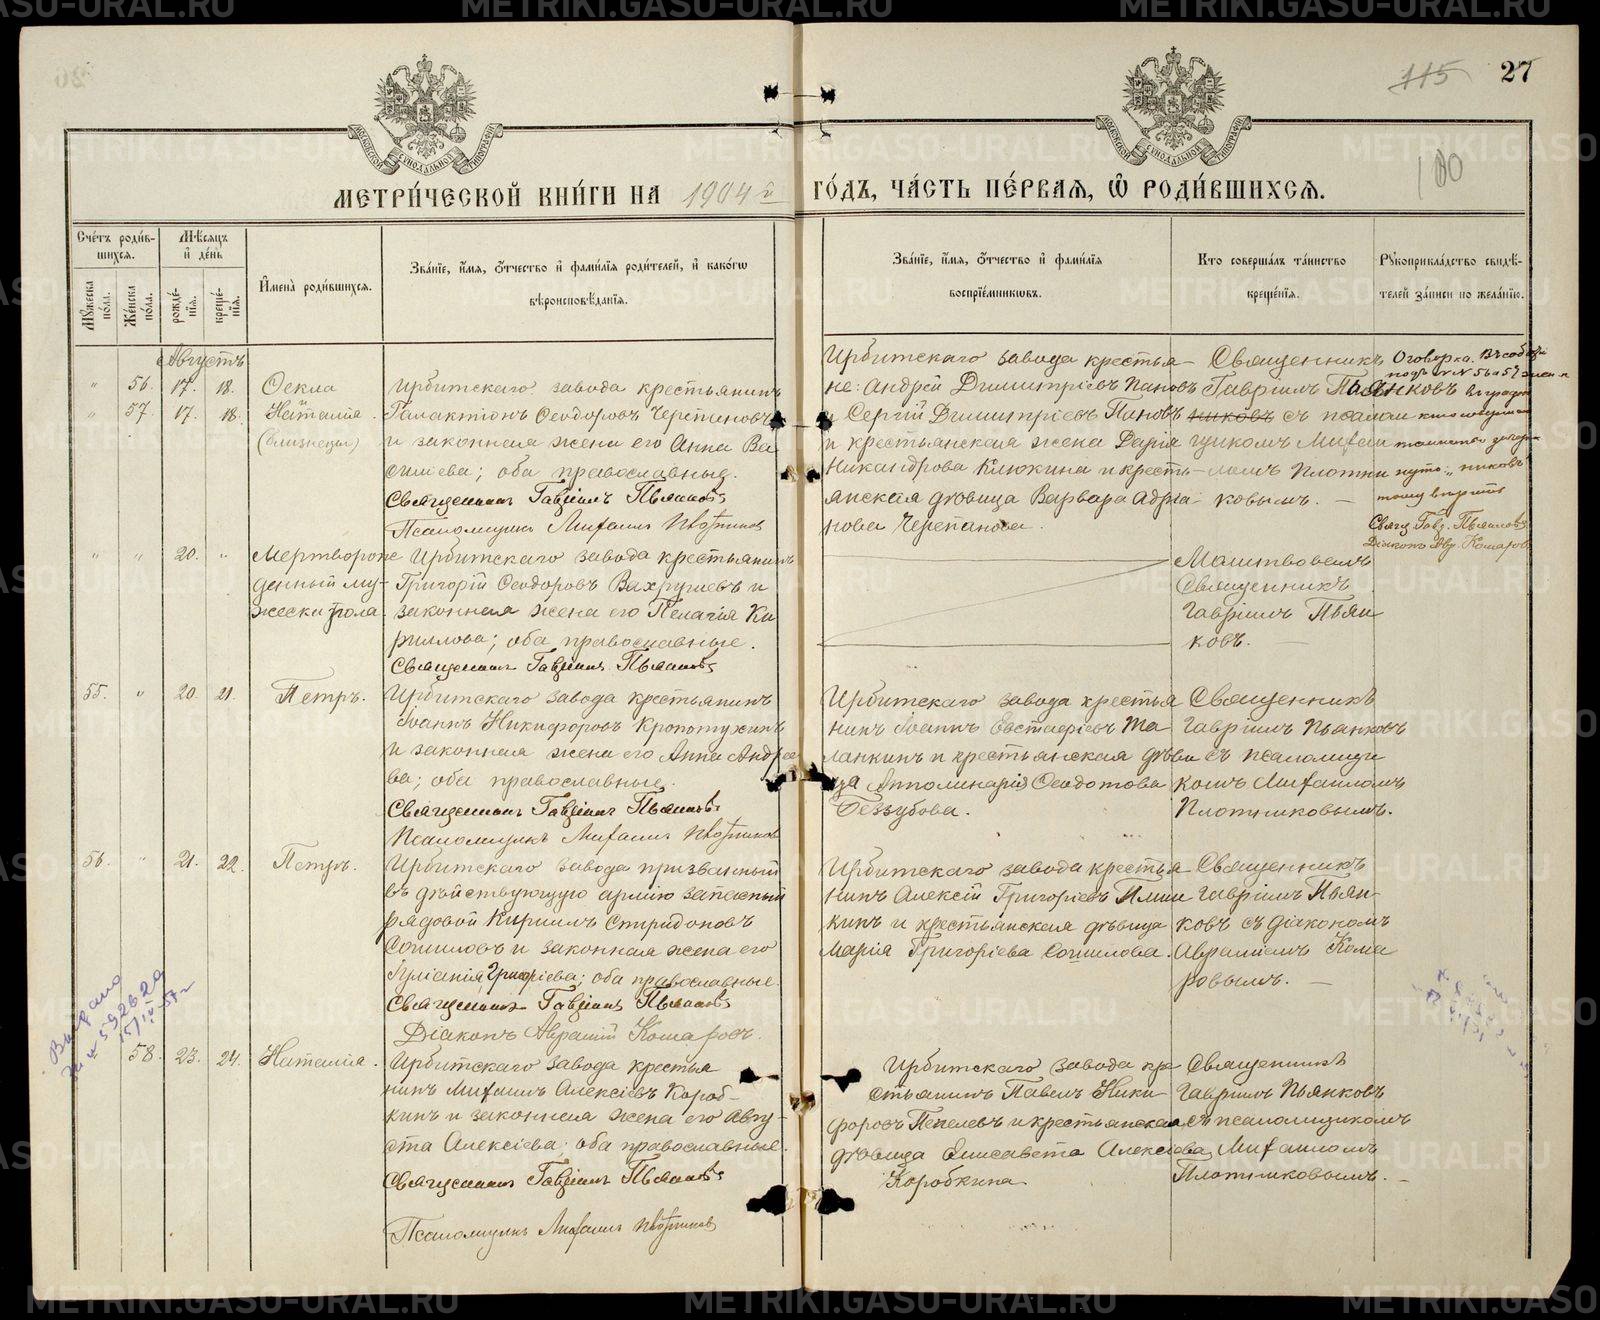 115 27
100
МЕТРИ́ЧЕСКОЙ КНИ́ГИ НА 1904 й ГО́ДЪ, ЧА́СТЬ ПЕ́РВАЯ, Ѡ РОДИ́ВШИХСЯ.
Сче́тъ роди́в-
шихся.
Му́жеска по́ла.
Же́нска по́ла.
Мѣ́сяцъ
и де́нь
рожде́-
нїя.
креще́-
нїя.
И҆мена̀ роди́вшихся.
Зва́нїе, и҆́мя, ѻ҆́тчество и҆ фами́лїя роди́телей, и҆ како́гѡ
вѣроисповѣ́данїя.
Зва́нїе, и҆́мя, ѻ҆́тчество и҆ фами́лїя
воспрїе́мниковъ.
Кто̀ соверша́лъ та́инство
креще́нїя.
Рꙋкоприкла́дство свидѣ́-
телей за́писи по жела́нїю.
Августъ
" 56. 17. 18. Ѳекла
" 57. 17. 18. Наталія.
(близнецы)
Ирбитскаго завода крестьянинъ
Галактіонъ Ѳеодоровъ Черепановъ
и законная жена его Анна Ва
силіева; оба православные.
Священникъ Гавріилъ Пьянковъ
Псаломщикъ Михаилъ Плотников
Ирбитскаго завода крестья-
не: Андрей Димитріевъ Пановъ
и Сергій Димитріевъ Пановъ
и крестьянская жена Дарія
Никандрова Клюкина и кресть-
янская дѣвица Варвара Адріа-
нова Черепанова.
Священникъ
Гавріилъ Пьянковъ
никовъ съ псалом
щикомъ Михаи
ломъ Плотни
ковымъ. —
Оговорка. Въ
подъ № № 56 и 57
въ графѣ
кто совершалъ
таинство зачерк
нуто: „никовъ"
тому вѣрить
Свящ. Гавр. Пьянковъ
Діаконъ Авр. Комаров
" " 20. " Мертворож
денный му-
жеска пола.
Ирбитскаго завода крестьянинъ
Григорій Ѳеодоровъ Вахрушевъ и
законная жена его Пелагія Ки
риллова; оба православные.
Священникъ Гавріилъ Пьянковъ
Молитвовалъ
Священникъ
Гавріилъ Пьян
ковъ.
55. " 20. 21. Петръ.
Ирбитскаго завода крестьянинъ
Іоаннъ Никифоровъ Кропотухинъ
и законная жена его Анна Андрее
ва; оба православные.
Священникъ Гавріилъ Пьянковъ
Псаломщикъ Михаилъ Плотников
Ирбитскаго завода крестья
нинъ Іоаннъ Евстафіевъ Та
ланкинъ и крестьянская дѣви
ца Апполинарія Ѳеодотова
Беззубова.
Священникъ
Гавріилъ Пьянковъ
съ псаломщи
комъ Михаиломъ
Плотниковымъ.
56. " 21. 22. Петръ.
Ирбитскаго завода призванный
въ дѣйствующую армію запасный
рядовой Кириллъ Спиридоновъ
Сошиловъ и законная жена его
Іуліанія Григоріева; оба православные.
Священникъ Гавріилъ Пьянковъ
Діаконъ Аврамій Комаровъ
Ирбитскаго завода крестья
нинъ Алексій Григоріевъ
кинъ и крестьянская дѣвица
Марія Григоріева Сошилова.
Священникъ
Гавріилъ Пьян-
ковъ съ діакономъ
Авраміемъ Кома
ровымъ. —
Выдано
15/IV-57 г
" 58. 23. 24. Наталія.
Ирбитскаго завода крестья
нинъ Михаилъ Алексіевъ Короб-
кинъ и законная жена его Авгу-
ста Алексіева; оба православные.
Священникъ Гавріилъ Пьянковъ
Псаломщикъ Михаилъ Плотников
Ирбитскаго завода кре
стьянинъ Павелъ Ники
форовъ Пепелевъ и крестьянская
дѣвица Елисавета Алексіева
Коробкина
Священникъ
Гавріилъ Пьянковъ
съ псаломщикомъ
Михаиломъ
Плотниковымъ. —
METRIKI.GASO-URAL.RU